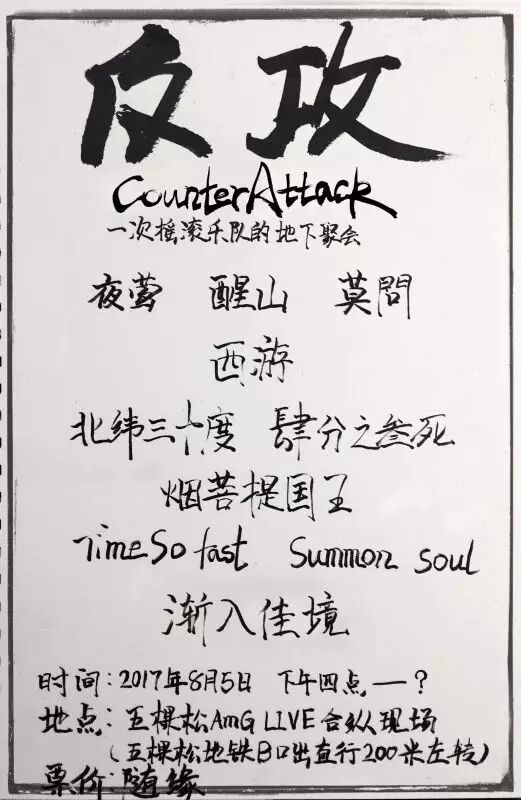 反攻
CounterAttack
一次摇滚乐队的地下聚会
夜莺 醒山 莫問
西游
北纬三十度 肆分之叁死
烟菩提国王
Time So fast Summon soul
渐入佳境
时间:2017年8月5日 下午四点—?
地点:五棵松AmG LIVE合纵现场
(五棵松地铁B口出直行200米左转)
票价:随缘